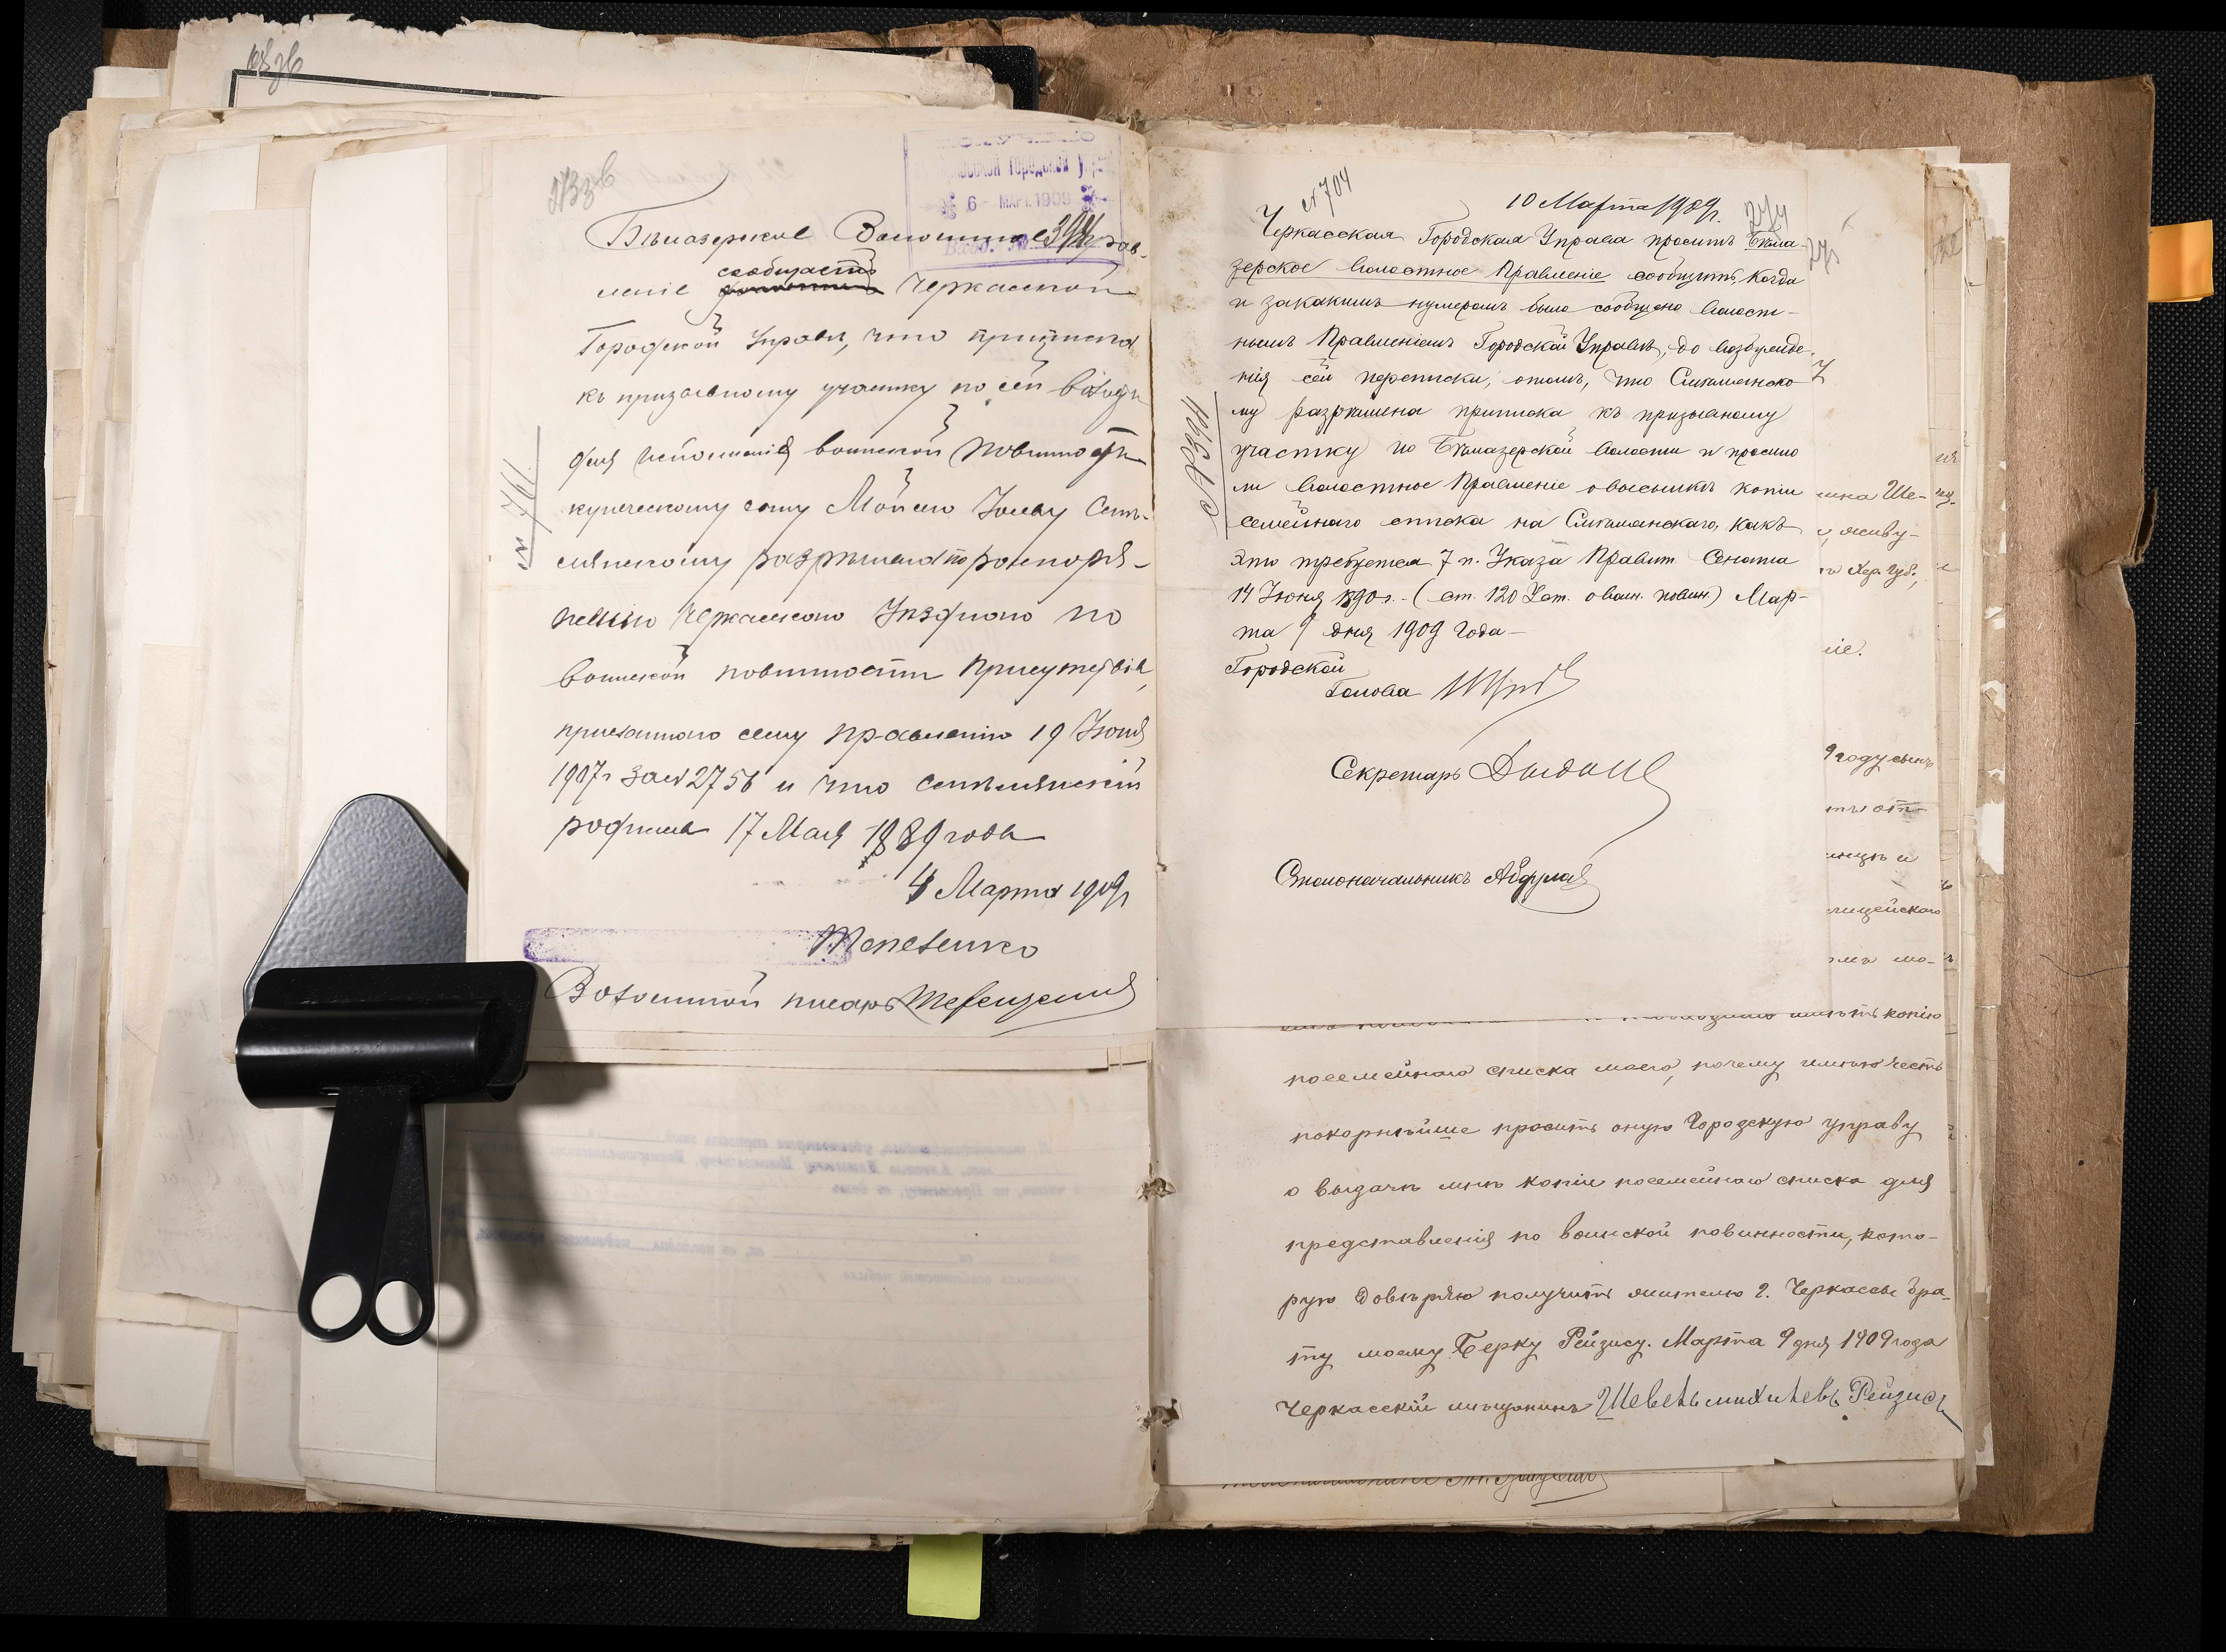 273 зв
Черкасской Городской Управ
6 МАРТ. 1909
Вход. № 3904
Бѣлозерское Волостное Прав-
леніе сообщаетъ Черкасской
Городской Управѣ, что приписка
къ призывному участку по сей волости
для исполненія воинской повинности
купеческому сыну Мойсею Іосеву Смѣ-
лянскому разрѣшена по распоря-
женію Черкасскаго Уѣзднаго по
воинской повинности Присутствія,
присланнаго сему правленію 19 Іюня
1907 г за № 2756 и что Смѣлянскій
родился 17 Мая 1889 года
4 Марта 1909 г
Волостной писарь
№ 761
№ 704
10 Марта 1909 г.
274
Черкасская Городская Управа проситъ Бѣло-
зерское Волостное Правленіе сообщить, когда
и закакимъ нумеромъ было сообщено Волост-
нымъ Правленіемъ Городской Управѣ, до возбужде-
нія сей переписки, отомъ, что Смѣлянско-
му разрѣшена приписка къ призывному
участку по Бѣлозерской Волости и просило
ли Волостное Правленіе овысылкѣ копіи
семейнаго списка на Смѣлянскаго, какъ
это требуется 7 п. Указа Правит. Сената
14 Іюня 1890 г. - (ст. 120 Уст. овоин. повин.) Мар-
та 9 дня 1909 года
Городской
Голова
Секретарь
Столоначальникъ
№ 3904
имѣть копію
посемейнаго списка моего, почему имѣю честь
покорнѣйше просить оную Городскую управу
о выдачѣ мнѣ копіи посемейнаго списка для
представленія по воинской повинности, кото-
рую довѣряю получить жителю г. Черкассы бра-
ту моему Берку Рейзису. Марта 9 дня 1909 года
Черкасскій мѣщанинъ Шевель Михилевъ Рейзисъ